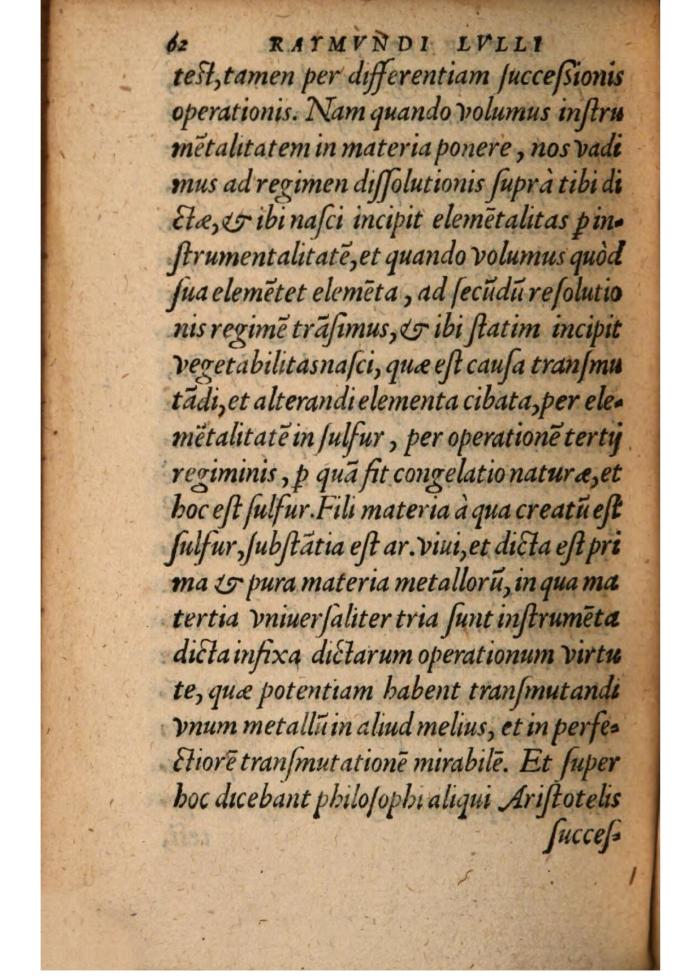 62 RAYMVNDI LVLLI
test, tamen per differentiam ſucceſsionis
operationis. Nam quando volumus inſtru
mētalitatem in materia ponere, nos vadi
mus ad regimen diſſolutionis ſuprà tibi di
ctæ, & ibi naſci incipit elemētalitas ꝑ in-
ſtrumentalitatē, et quando volumus quòd
ſua elemētet elemēta, ad ſecūdū reſolutio
nis regimē trāſimus, & ibi ſtatim incipit
vegetabilitas naſci, quæ eſt cauſa tranſmu
tādi, et alterandi elementa cibata, per ele-
mētalitatē in ſulfur, per operationē tertij
regiminis, ꝑ quā fit congelatio naturæ, et
hoc eſt ſulfur. Fili materia à qua creatū eſt
ſulfur, ſubſtātia eſt ar. viui, et dicta eſt pri
ma & pura materia metallorū, in qua ma
tertia vniuerſaliter tria ſunt inſtrumēta
dicta infixa dictarum operationum virtu
te, quæ potentiam habent tranſmutandi
vnum metallū in aliud melius, et in perfe-
ctiorē tranſmutationē mirabilē. Et ſuper
hoc dicebant philoſophi aliqui Ariſtotelis
ſucceſ-